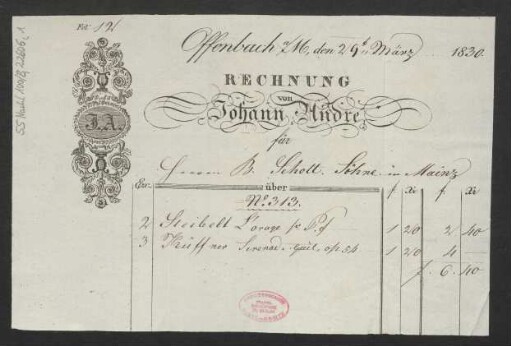 Fol: 191
Offenbach a/M, den 29t März 1830.
RECHNUNG
von
Johann André
für
J.A.
Herrn B. Schott Söhne in Mainz
Exr. über f Xr f Xr
No. 313.
2 Steibelt L'orage p Pf 1 20 2. 40
3 Küffner Serenad. Guit. op. 54 1 20 4 —
f. 6. 40
55 Nachl 100/B, 22606, 1